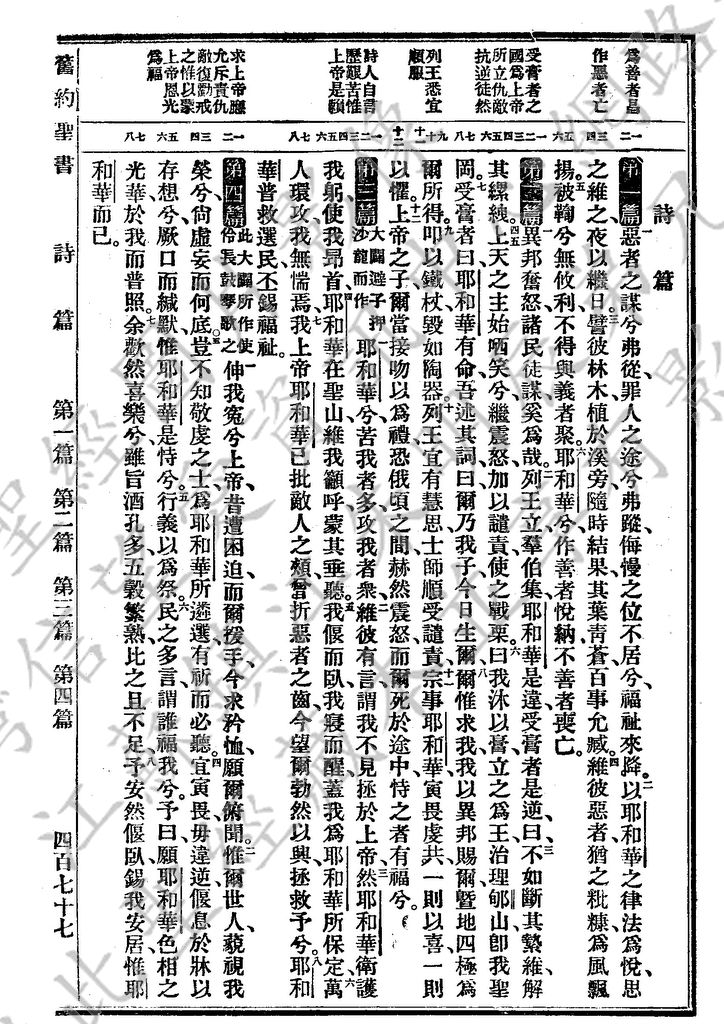 詩篇
爲善者昌
作惡者亡
受膏者之
國爲上帝
所立仇敵
抗逆徒然
列王悉宜
順服
詩人自言
歷艱苦惟
上帝是賴
求上帝應
允斥責仇
敵復勸戒
之惟以蒙
上帝恩光
爲福
第一篇 惡者之謀兮弗從罪人之途兮弗蹤侮慢之位不居兮福祉來降以耶和華之律法爲悅思
之維之夜以繼日譬彼林木植於溪旁隨時結果其葉靑蒼百事允臧維彼惡者猶之粃糠爲風飄
揚被鞫兮無攸利不得與義者聚耶和華兮作善者悅納不善者喪亡
第二篇 異邦奮怒諸民徒謀奚爲哉列王立羣伯集耶和華是違受膏者是逆曰不如斷其縶維解
其縲絏上天之主始哂笑兮繼震怒加以譴責使之戰栗曰我沐以膏立之爲王治理郇山卽我聖
岡受膏者曰耶和華有命吾述其詞曰爾乃我子今日生爾爾惟求我我以異邦賜爾暨地四極爲
爾所得叩以鐵杖毀如陶器列王宜有慧思士師順受譴責宗事耶和華寅畏虔共一則以喜一則
以懼上帝之子爾當接吻以爲禮恐俄頃之間赫然震怒而爾死於途中恃之者有福兮
第三篇 大闢避子押沙龍而作 耶和華兮苦我者多攻我者衆維彼有言謂我不見拯於上帝然耶和華衛護
我躬使我昂首耶和華在聖山維我籲呼蒙其垂聽我偃而臥我寢而醒蓋我爲耶和華所保定萬
人環攻我無惴焉我上帝耶和華已批敵人之頰曾折惡者之齒今望爾勃然以興拯救予兮耶和
華普救選民丕錫福祉
第四篇 此大闢所作使伶長鼓琴歌之 伸我冤兮上帝昔遭困迫而爾援手今求矜恤願爾俯聞惟爾世人藐視我
榮兮尙虛妄而何底豈不知敬虔之士爲耶和華所遴選有祈而必聽宜寅畏毋違逆偃息於牀以
存想兮厥口而緘默惟耶和華是恃兮行義以爲祭民之多言謂誰福我兮予曰願耶和華色相之
光華於我而普照余歡然喜樂兮雖旨酒孔多五穀繁熟比之且不足予安然偃臥錫我安居惟耶
和華而已
舊約聖書 詩篇 第一篇 第二篇 第三篇 第四篇 四百七十七